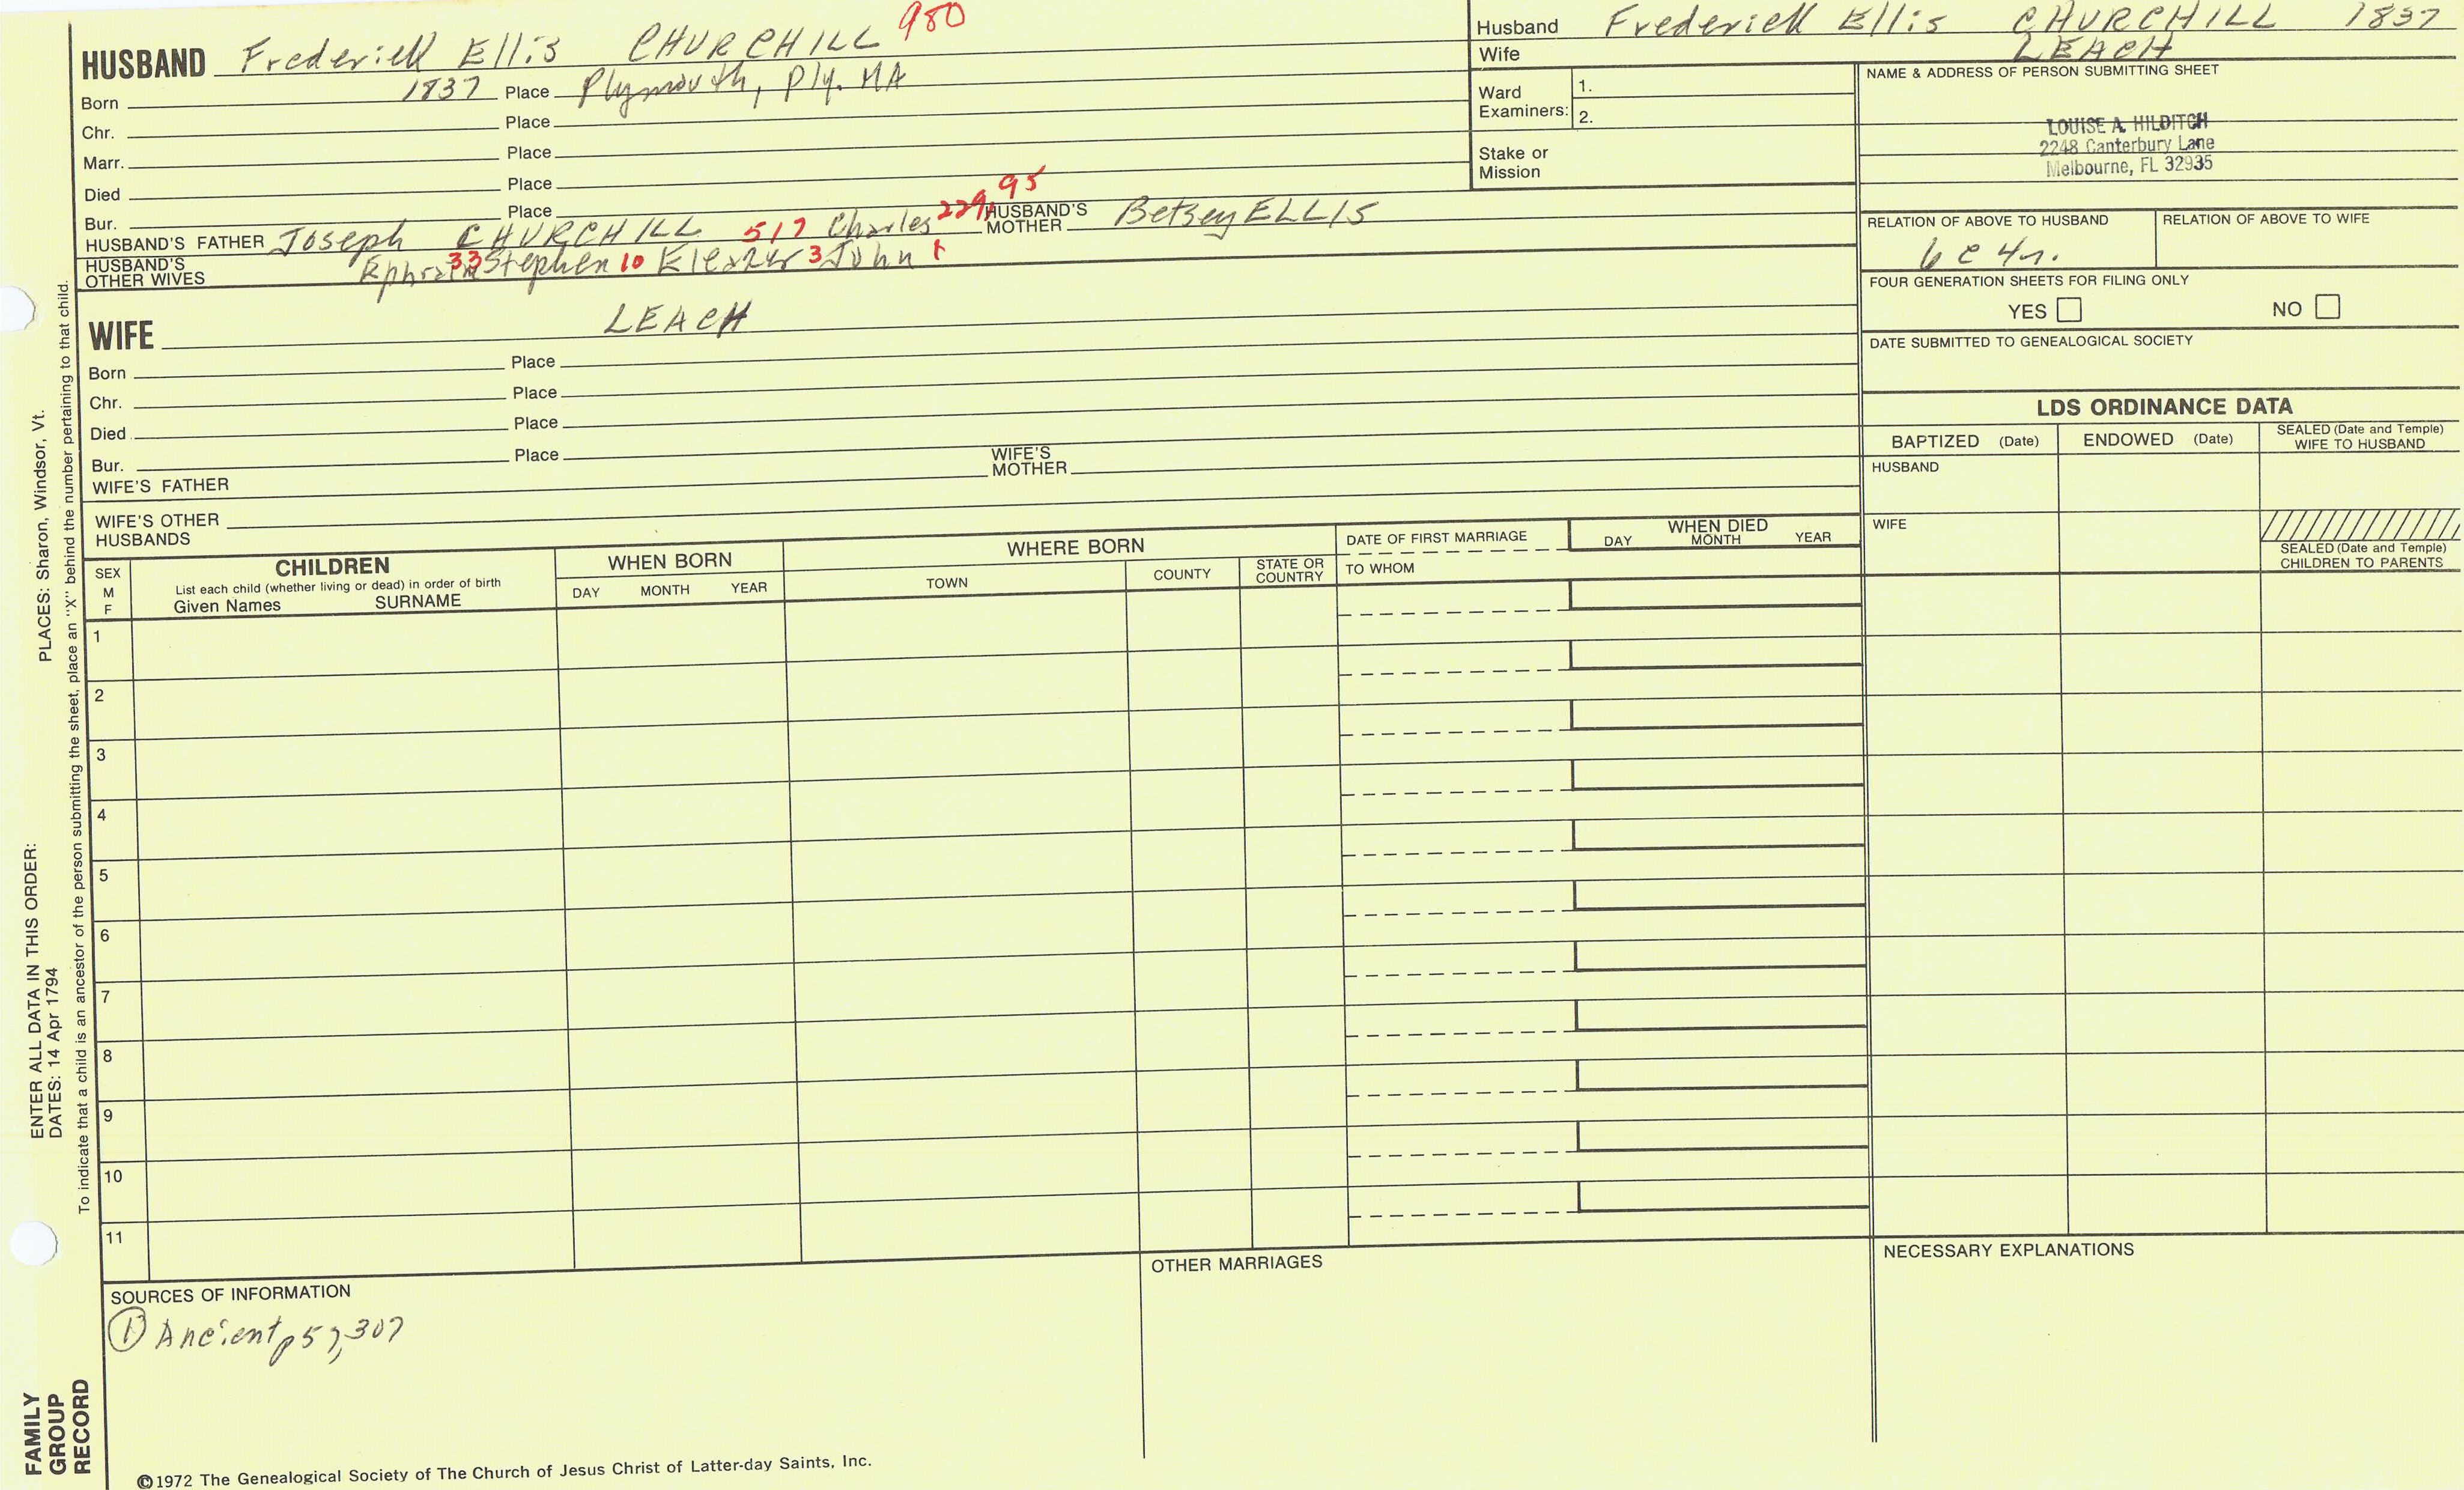 HUSBAND Frederick Ellis CHURCHILL 980
Born 1837 Place Plymouth, Ply. MA
Chr. Place
Marr. Place
Died Place
Bur. Place
HUSBAND'S FATHER Joseph CHURCHILL 517 Charles 229, 95 HUSBAND'S MOTHER Betsey ELLIS
HUSBAND'S OTHER WIVES Ephraim 33 Stephen 10 Eleazer 3 John 1
WIFE LEACH
Born Place
Chr. Place
Died Place
Bur. Place
WIFE'S FATHER WIFE'S MOTHER
WIFE'S OTHER HUSBANDS
Husband Frederick Ellis CHURCHILL 1837
Wife LEACH
Ward Examiners: 1.
2.
Stake or Mission
NAME & ADDRESS OF PERSON SUBMITTING SHEET
LOUISE A. HILDITCH
2248 Canterbury Lane
Melbourne, FL 32935
RELATION OF ABOVE TO HUSBAND RELATION OF ABOVE TO WIFE
6c4r.
FOUR GENERATION SHEETS FOR FILING ONLY
YES NO
DATE SUBMITTED TO GENEALOGICAL SOCIETY
LDS ORDINANCE DATA
BAPTIZED (Date) ENDOWED (Date) SEALED (Date and Temple) WIFE TO HUSBAND
HUSBAND
WIFE
SEALED (Date and Temple) CHILDREN TO PARENTS
SEX M F
CHILDREN
List each child (whether living or dead) in order of birth
Given Names SURNAME
WHEN BORN
DAY MONTH YEAR
WHERE BORN
TOWN COUNTY STATE OR COUNTRY
DATE OF FIRST MARRIAGE
TO WHOM
WHEN DIED
DAY MONTH YEAR
1
2
3
4
5
6
7
8
9
10
11
SOURCES OF INFORMATION
① Ancient p57,307
OTHER MARRIAGES
NECESSARY EXPLANATIONS
©1972 The Genealogical Society of The Church of Jesus Christ of Latter-day Saints, Inc.
FAMILY GROUP RECORD
ENTER ALL DATA IN THIS ORDER:
DATES: 14 Apr 1794
PLACES: Sharon, Windsor, Vt.
To indicate that a child is an ancestor of the person submitting the sheet, place an "X" behind the number pertaining to that child.